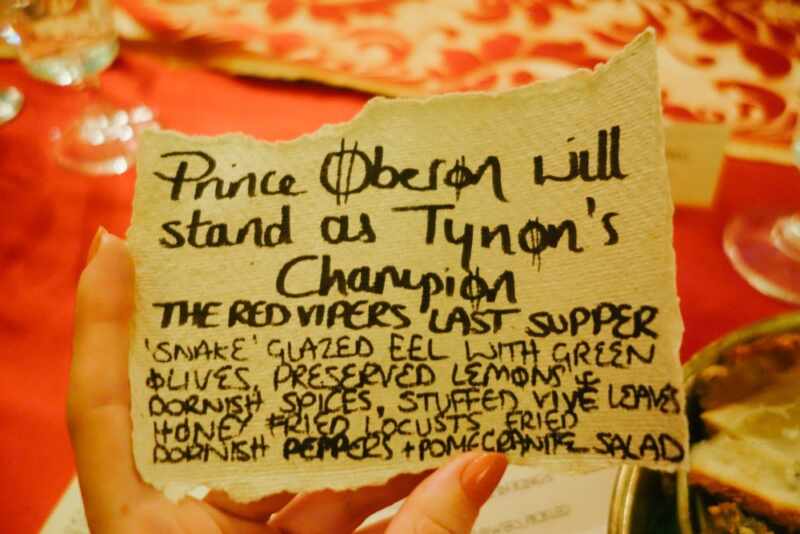 Prince Oberon will
stand as Tynon's
Champion
THE RED VIPERS LAST SUPPER
'SNAKE' GLAZED EEL WITH GREEN
OLIVES, PRESERVED LEMONS &
DORNISH SPICES, STUFFED VIVE LEAVES
HONEY FRIED LOCUSTS, FRIED
DORNISH PEPPERS + POMEGRANITE SALAD